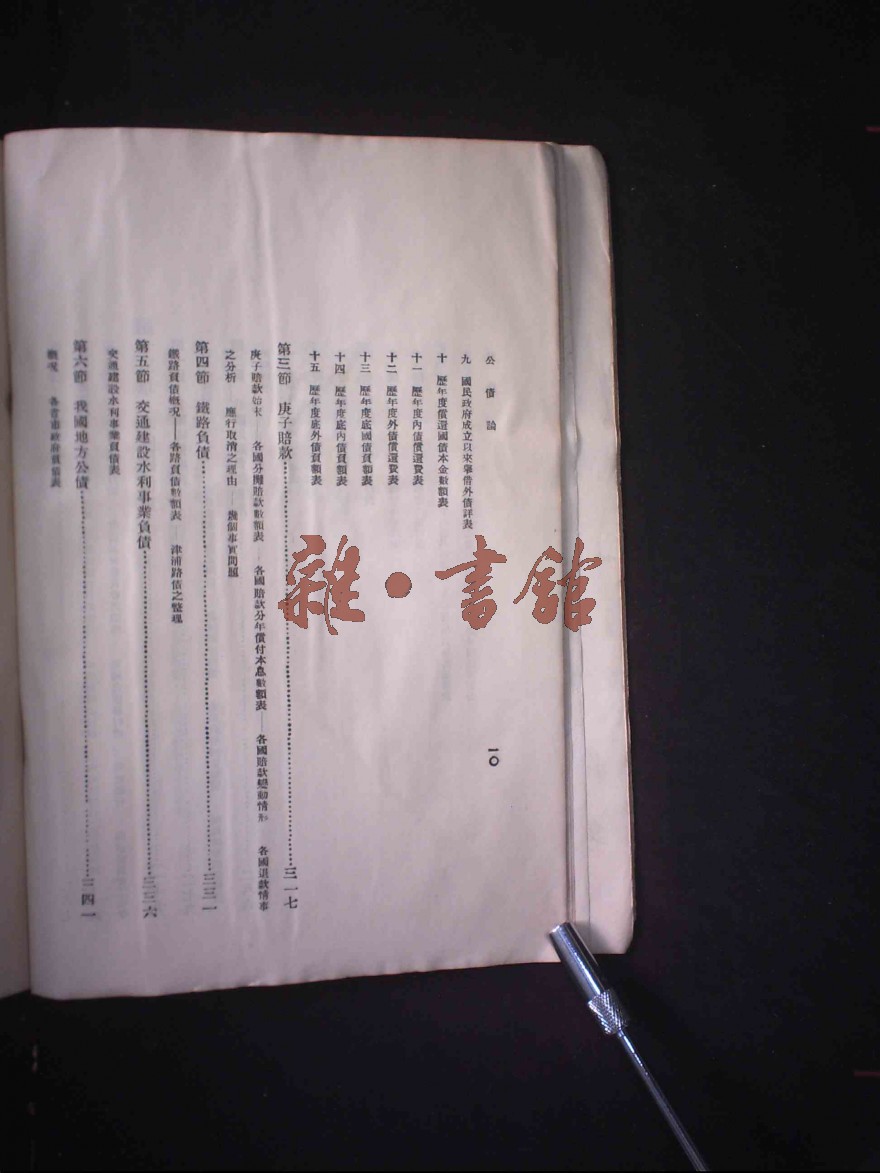 公債論
一〇
九 國民政府成立以來舉借外債詳表
十 歷年度償還國債本金數額表
十一 歷年度內債償還費表
十二 歷年度外債償還費表
十三 歷年度底國債負額表
十四 歷年度底內債負額表
十五 歷年度底外債負額表
第三節 庚子賠款……三一七
庚子賠款始末——各國分攤賠款數額表——各國賠款分年償付本息數額表——各國賠款變動情形——各國退款情事
之分析——應行取消之理由——幾個事實問題
第四節 鐵路負債……三三一
鐵路負債概況——各路負債數額表——津浦路債之整理
第五節 交通建設水利事業負債……三三六
交通建設水利事業負債表
第六節 我國地方公債……三四一
概況——各省市政府負債表
雜·書館